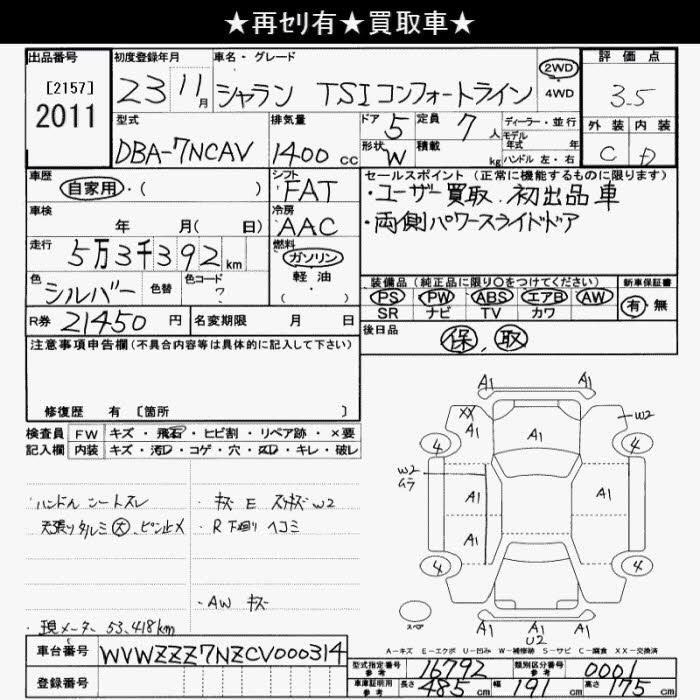 ★再ｾﾘ有★買取車★
出品番号 初度登録年月 車名・グレード 評価点
[2157]
2011
23 11月 シャラン TSIコンフォートライン
2WD
4WD
3.5
型式 排気量 ドア 5 定員 7人 ディーラー・並行 外装 内装
DBA-7NCAV 1400cc 形状 W 積載 kg モデル年式 年 C D
ハンドル 左・右
車歴 シフト セールスポイント (正常に機能するものに限ります)
自家用・( ) FAT ・ユーザー買取、初出品車
車検 冷房 ・両側パワースライドドア
年 月( 日) AAC
走行 燃料
5万3千392km ガソリン
軽油
( )
色 シルバー 色替 色コード ワ
装備品(純正品に限り○をつけてください) 新車保証書
PS PW ABS エアB AW 有・無
SR ナビ TV カワ
R券 21450円 名変期限 月 日 後日品 保、取
注意事項申告欄(不具合内容等は具体的に記入して下さい)
修復歴 有 [箇所 ]
検査員 FW キズ・飛石・ヒビ割・リペア跡・×要
記入欄 内装 キズ・汚レ・コゲ・穴・スレ・キレ・破レ
ハンドル シートスレ ・キズ E スリキズ W2
天張りタルミ大、ピン止メ ・R下廻りヘコミ
・AW キズ
・現メーター 53,418km
A1 A1
XX A1 A1 W2
4 4
W2 ムラ
A1 A1
A1
4 4
スペア
A1 A1 A1
U2
A-キズ E-エクボ U-凹み W-補修跡 S-サビ C-腐食 XX-交換済
車台番号 WVWZZZ7NZCV000314
登録番号
型式指定番号 参考 16792 類別区分番号 参考 0001
車庫証明用 参考 長さ 485cm 幅 191cm 高さ 175cm